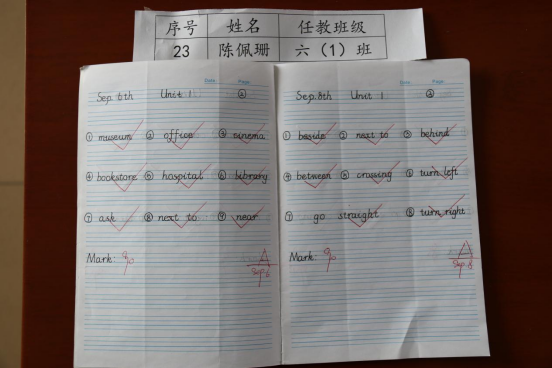 序号 姓名 任教班级
23 陈佩珊 六（1）班
Date: Page:
Sep. 6th Unit 1 ②
① museum ② office ③ cinema
④ bookstore ⑤ hospital ⑥ library
⑦ ask ⑧ next to ⑨ near
Mark: %
A
Sep.6
Date: Page:
Sep. 8th Unit 1 ②
① beside ② next to ③ behind
④ between ⑤ crossing ⑥ turn left
⑦ go straight ⑧ turn right
Mark: %
A
Sep.8